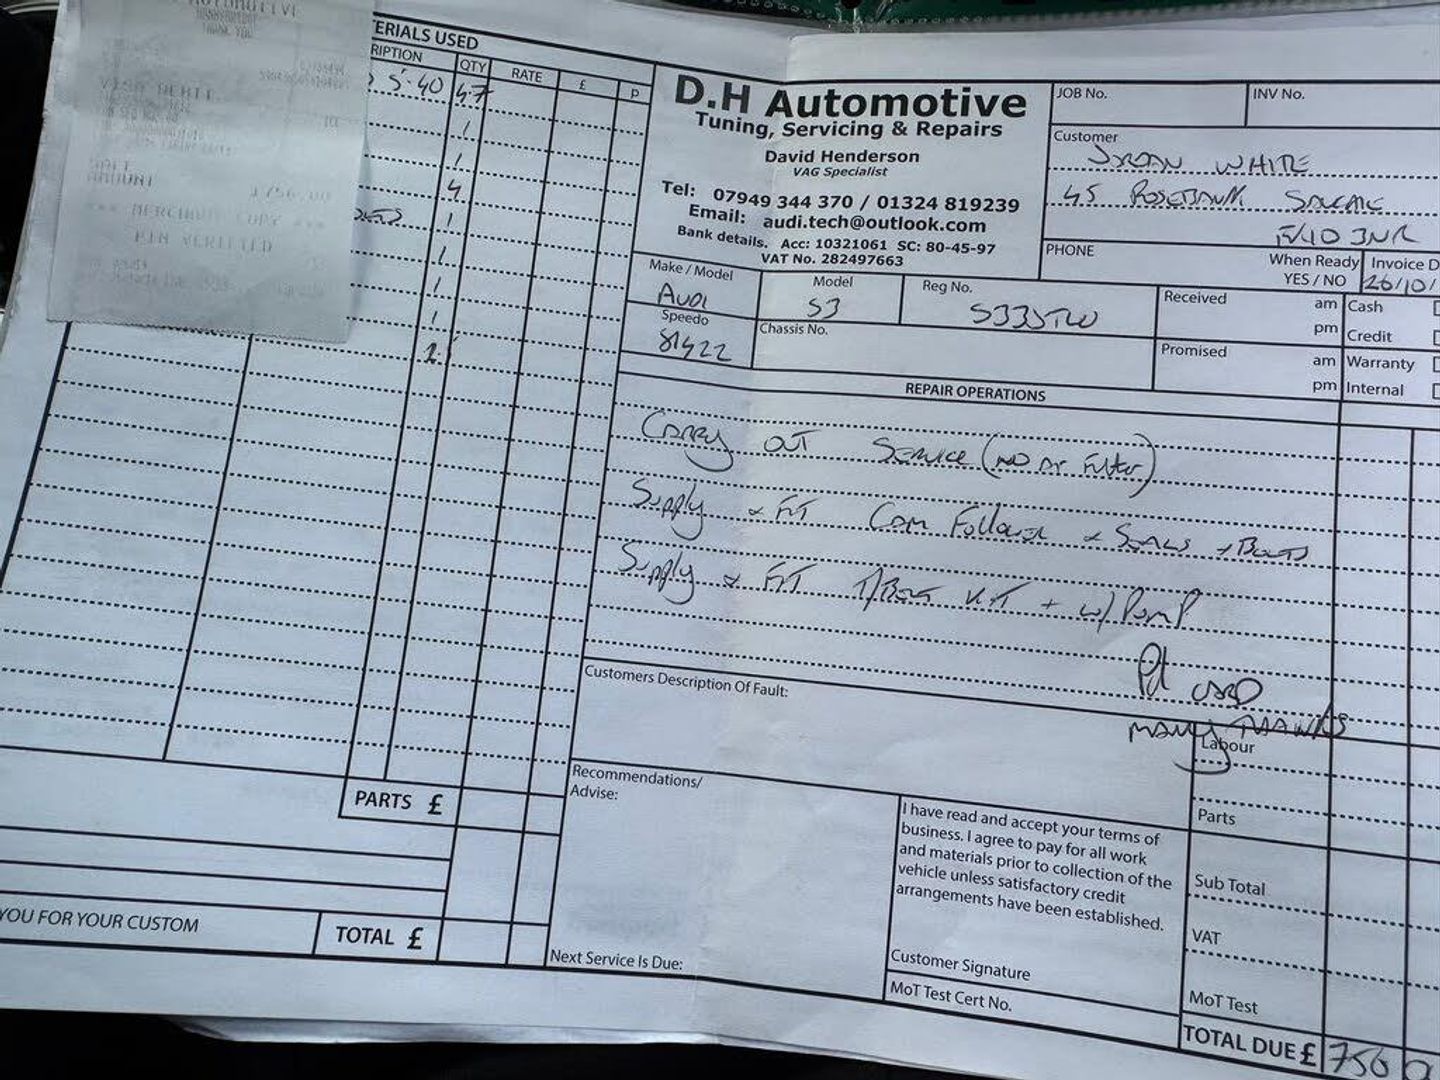 AUTOMOTIVE
THANK YOU
VISA DEBIT
SALE
AMOUNT £756.00
*** MERCHANT COPY ***
PIN VERIFIED
ERIALS USED
RIPTION QTY RATE £ P
5-40 4.7
1
1
4
1
1
1
1
2
PARTS £
YOU FOR YOUR CUSTOM
TOTAL £
D.H Automotive
Tuning, Servicing & Repairs
David Henderson
VAG Specialist
Tel: 07949 344 370 / 01324 819239
Email: audi.tech@outlook.com
Bank details. Acc: 10321061 SC: 80-45-97
VAT No. 282497663
JOB No. INV No.
Customer
WHITE
45
PHONE
When Ready
YES / NO
Invoice D
26/10/
Make / Model
Audi
Model
S3
Reg No.
S33STW
Received am
pm
Promised am
pm
Cash
Credit
Warranty
Internal
Speedo
81422
Chassis No.
REPAIR OPERATIONS
Carry OUT Service (NO Air Filter)
Supply & FiT Cam Follower & Seals + Bolts
Supply & FiT T/Belt KiT + w/Pump
Pd CARD
MANY THANKS
Customers Description Of Fault:
Recommendations/
Advise:
Next Service Is Due:
I have read and accept your terms of
business. I agree to pay for all work
and materials prior to collection of the
vehicle unless satisfactory credit
arrangements have been established.
Customer Signature
MoT Test Cert No.
Labour
Parts
Sub Total
VAT
MoT Test
TOTAL DUE £ 756 0